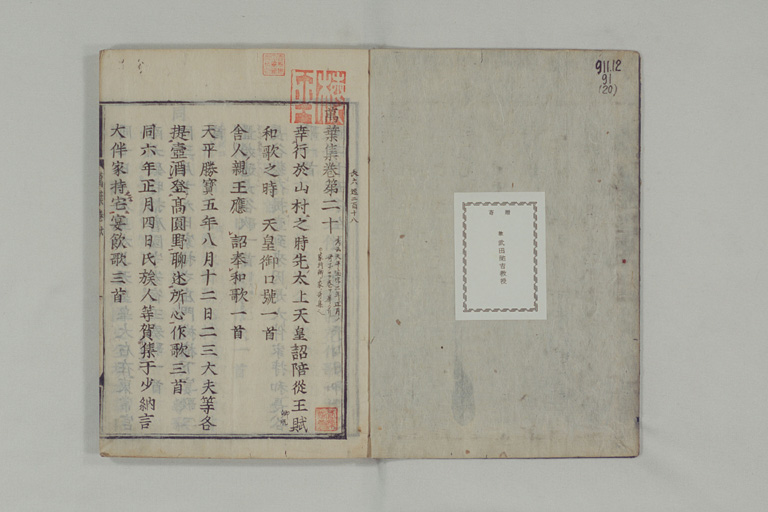 萬葉集卷第二十
幸行於山村之時先太上天皇詔陪從王賦
和歌之時　天皇御口號一首
舎人親王應　詔奉和歌一首
天平勝寶五年八月十二日二三大夫等各
提壺酒登髙圓野聊述所心作歌三首
同六年正月四日氏族人等賀集于少納言
大伴家持宅宴飲歌三首
911.12
91
(20)
寄贈
武田祐吉教授